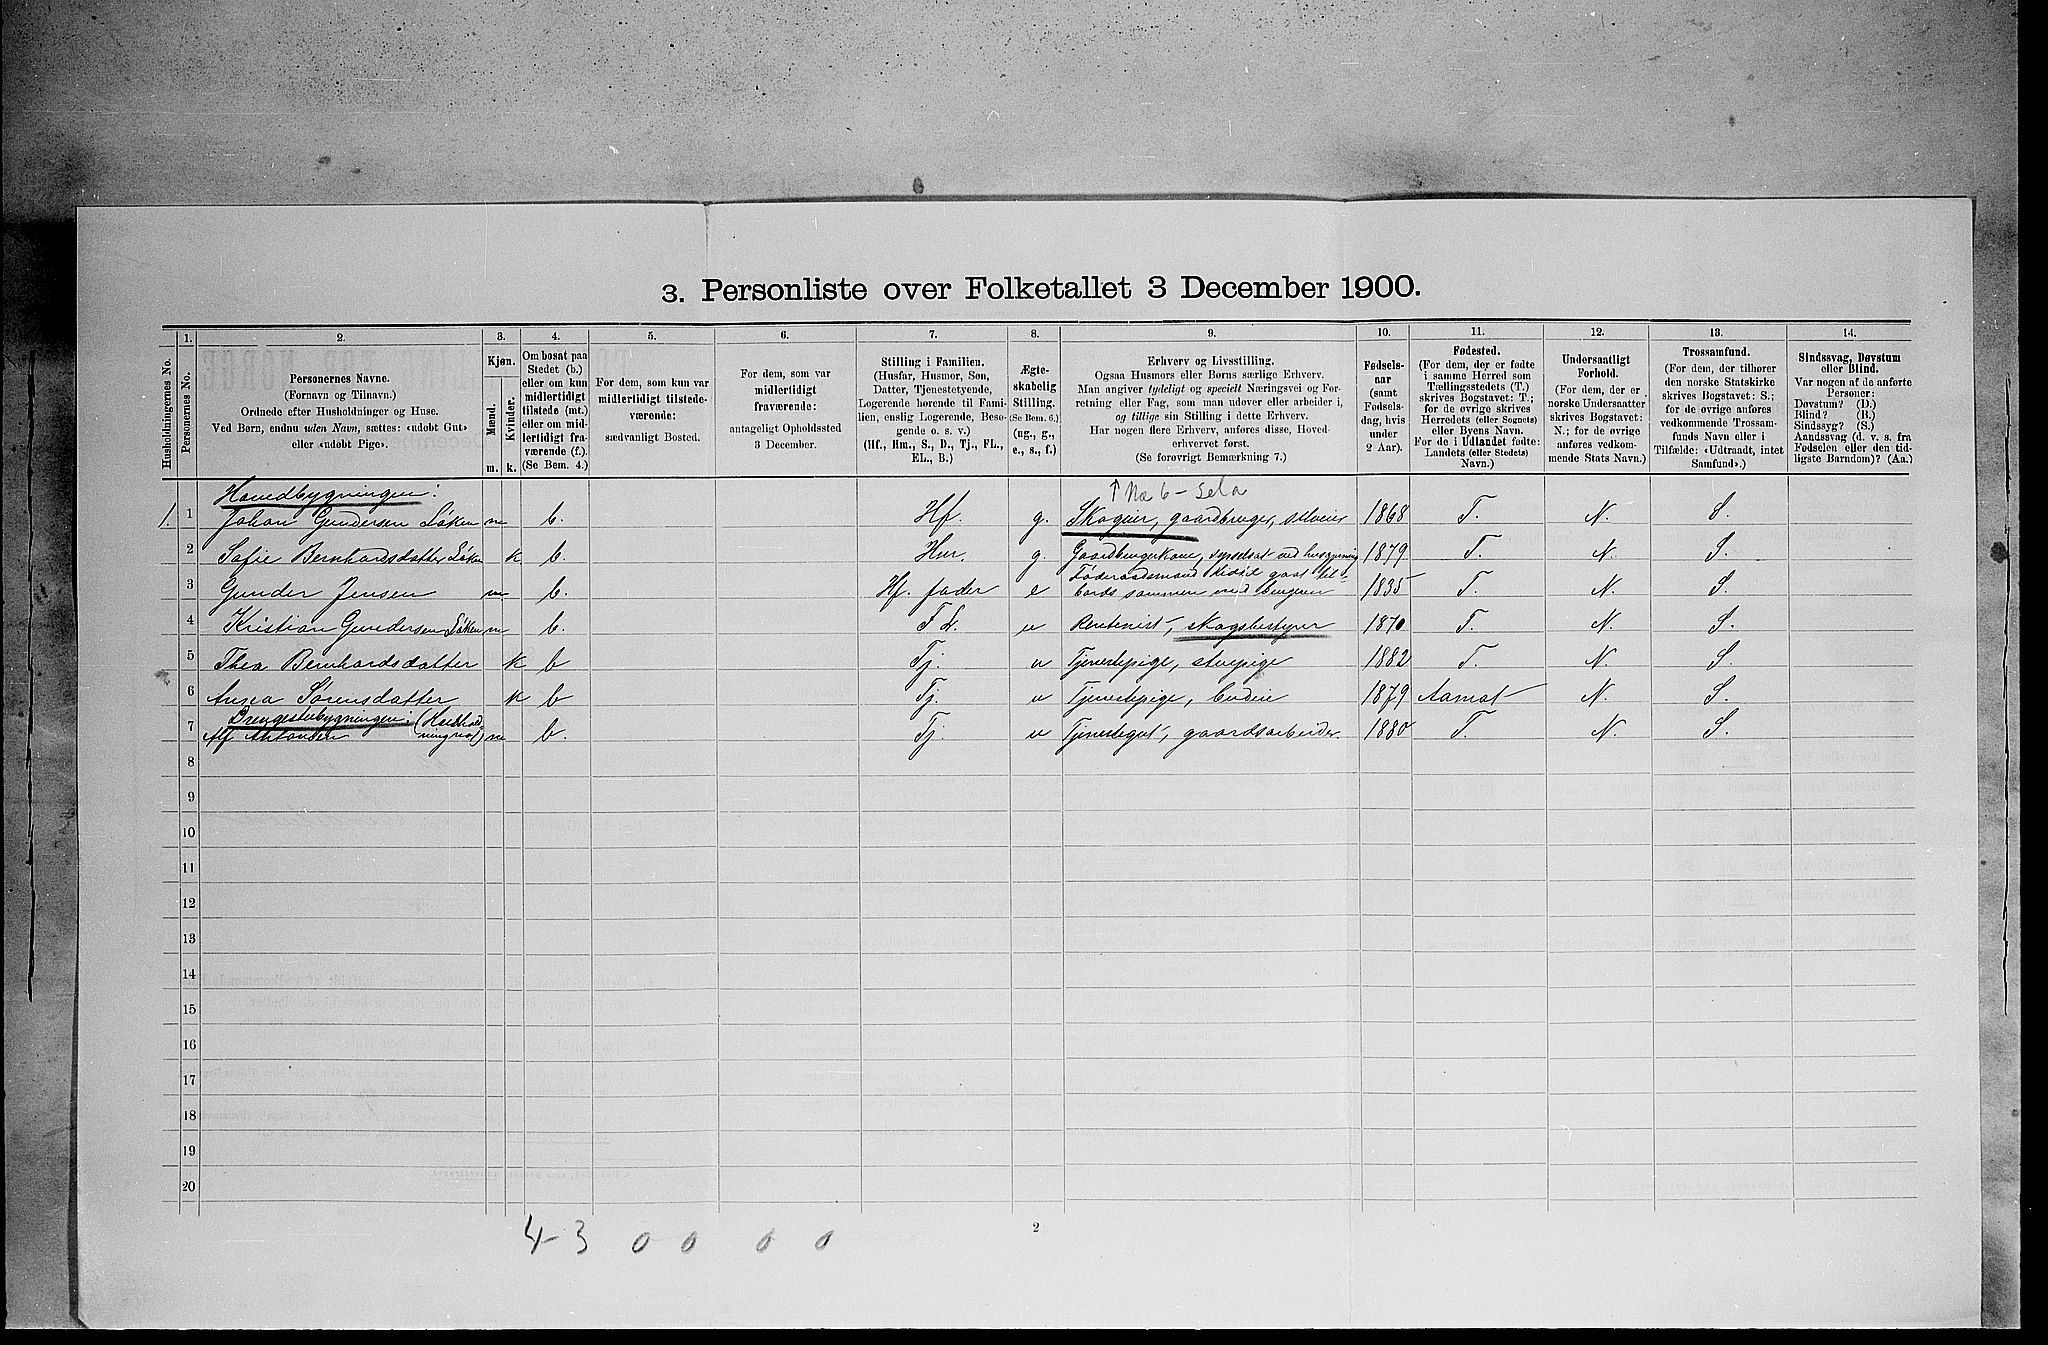 3. Personliste over Folketallet 3 December 1900.
Husholdningernes No.
1.
Personernes No.
2.
Personernes Navne.
(Fornavn og Tilnavn.)
Ordnede efter Husholdninger og Huse.
Ved Børn, endnu uden Navn, sættes: «udøbt Gut»
eller «udøbt Pige».
3.
Kjøn.
Mænd.
Kvinder.
m.
k.
4.
Om bosat paa
Stedet (b.)
eller om kun
midlertidigt
tilstede (mt.)
eller om mid-
lertidigt fra-
værende (f.).
(Se Bem. 4.)
5.
For dem, som kun var
midlertidigt tilstede-
værende:
sædvanligt Bosted.
6.
For dem, som var
midlertidigt
fraværende:
antageligt Opholdssted
3 December.
7.
Stilling i Familien.
(Husfar, Husmor, Søn,
Datter, Tjenestetyende,
Logerende hørende til Fami-
lien, enslig Logerende, Besø-
gende o. s. v.)
(Hf., Hm., S., D., Tj., FL.,
EL., B.)
8.
Ægte-
skabelig
Stilling.
(Se Bem. 6.)
(ug., g.,
e., s., f.)
9.
Erhverv og Livsstilling.
Ogsaa Husmors eller Børns særlige Erhverv.
Man angiver tydeligt og specielt Næringsvei og For-
retning eller Fag, som man udøver eller arbeider i,
og tillige sin Stilling i dette Erhverv.
Har nogen flere Erhverv, anføres disse, Hoved-
erhvervet først.
(Se forøvrigt Bemærkning 7.)
10.
Fødsels-
aar
(samt
Fødsels-
dag, hvis
under
2 Aar).
11.
Fødested.
(For dem, der er fødte
i samme Herred som
Tællingsstedets (T.)
skrives Bogstavet: T.;
for de øvrige skrives
Herredets (eller Sognets)
eller Byens Navn.
For de i Udlandet fødte:
Landets (eller Stedets)
Navn.)
12.
Undersaatligt
Forhold.
(For dem, der er
norske Undersaatter
skrives Bogstavet:
N.; for de øvrige
anføres vedkom-
mende Stats Navn.)
13.
Trossamfund.
(For dem, der tilhører
den norske Statskirke
skrives Bogstavet: S.;
for de øvrige anføres
vedkommende Trossam-
funds Navn eller i
Tilfælde: «Udtraadt, intet
Samfund».)
14.
Sindssvag, Døvstum
eller Blind.
Var nogen af de anførte
Personer:
Døvstum? (D.)
Blind? (B.)
Sindssyg? (S.)
Aandssvag (d. v. s. fra
Fødselen eller den tid-
ligste Barndom)? (Aa.)
Hovedbygningen:
1. 1 Johan Gundersen Løken m b. Hf. g. Skogeier, gaardbruger, selveier 1868 T. N. S.
2 Sofie Bernhardsdatter Løken k b. Hm. g. Gaardbrugerkone, sysselsat ved husgjerning 1879 T. N. S.
3 Gunder Jensen m. b. Hf. fader e Føderaadsmand bords sammen med brugeren 1835 T. N. S.
4 Kristian Gundersen Løken m b. FL. u Rentenist, skogsbestyrer 1870 T. N. S.
5 Thea Bernhardsdatter k b Tj. u Tjenestepige, stuepige 1882 T. N. S.
6 Anna Sørensdatter k b Tj. u Tjenestepige, budeie 1879 Aamot N. S.
Drengestubygningen:
7 Alf Antonsen m b. Tj. u Tjenestegut, gaardsarbeider. 1880 T. N. S.
8
9
10
11
12
13
14
15
16
17
18
19
20
4-3 0 0 0 0
2